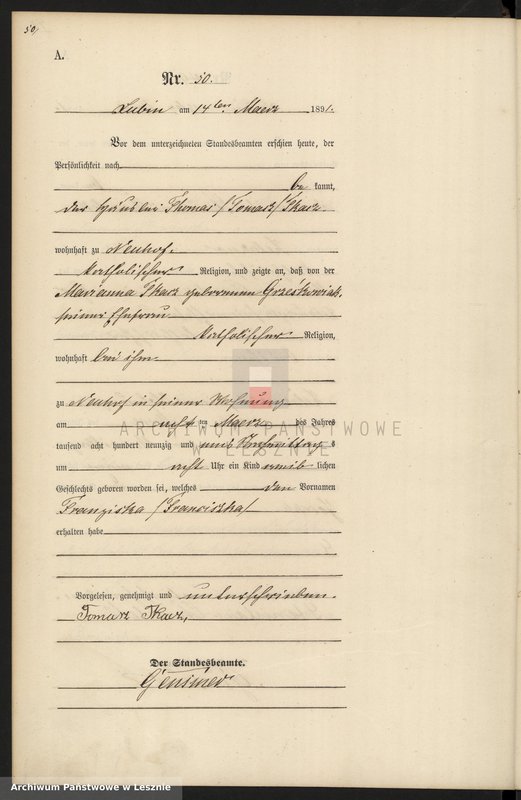 50
A.
Nr. 50.
Lubin am 14ten Maerz 1891.
Vor dem unterzeichneten Standesbeamten erschien heute, der
Persönlichkeit nach
be kannt,
der Häusler Thomas /Tomasz/ Tkacz
wohnhaft zu Neuhof.
katholischer Religion, und zeigte an, daß von der
Marianna Tkacz geborenen Grześkowiak,
seiner Ehefrau
katholischer Religion,
wohnhaft bei ihm
zu Neuhof in seiner Wohnung
am acht ten Maerz des Jahres
tausend acht hundert neunzig und eins Nachmittag s
um acht Uhr ein Kind weib lichen
Geschlechts geboren worden sei, welches den Vornamen
Franziska /Franciszka/
erhalten habe
Vorgelesen, genehmigt und unterschrieben.
Tomasz Tkacz,
Der Standesbeamte.
ARCHIWUM PAŃSTWOWE
W LESZNIE
Archiwum Państwowe w Lesznie